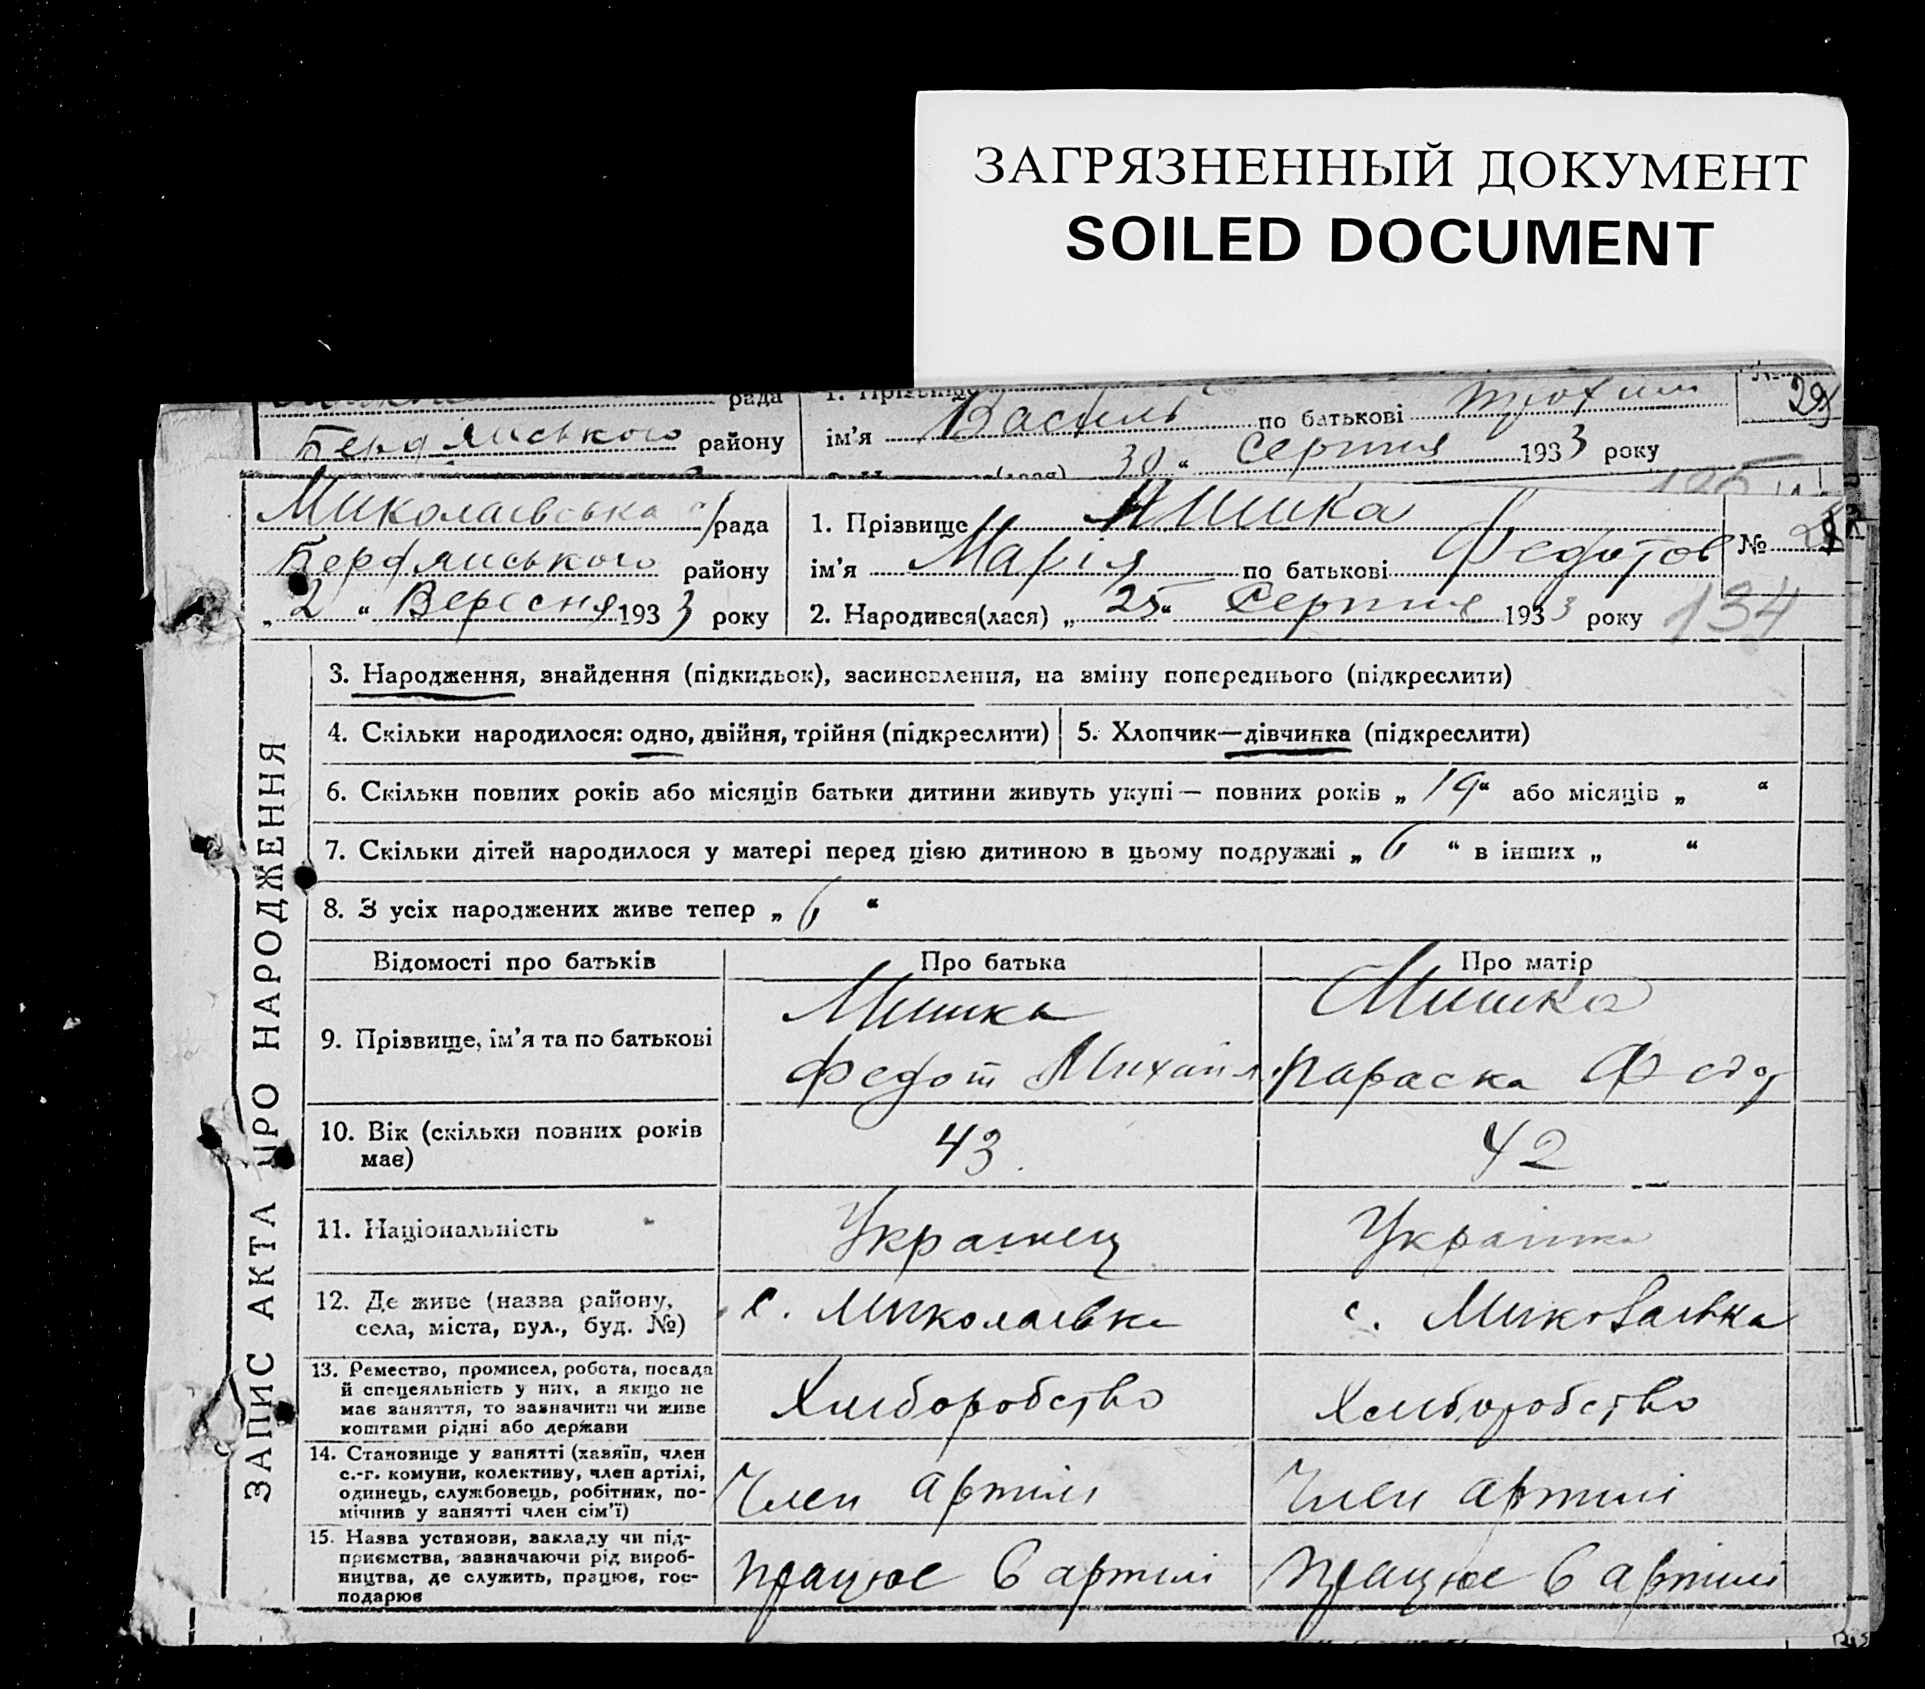 ЗАГРЯЗНЕННЫЙ ДОКУМЕНТ
SOILED DOCUMENT
рада
Бердянського району
ім'я Василь по батькові Трохим
29
30 “ Серпня 1933 року
Миколаївська с/рада
Бердянського району
„ 2 “ Вересня 1933 року
1. Прізвище Мишка
ім'я Марія по батькові Федотов
№
2. Народився(лася) „ 25 “ Серпня 1933 року
134
ЗАПИС АКТА ПРО НАРОДЖЕННЯ
3. Народження, знайдення (підкидьок), засиновлення, на зміну попереднього (підкреслити)
4. Скільки народилося: одно, двійня, трійня (підкреслити)
5. Хлопчик—дівчинка (підкреслити)
6. Скільки повних років або місяців батьки дитини живуть укупі — повних років „ 19 “ або місяців „ “
7. Скільки дітей народилося у матері перед цією дитиною в цьому подружжі „ 6 “ в інших „ “
8. З усіх народжених живе тепер „ 6 “
Відомості про батьків
Про батька
Про матір
9. Прізвище, ім'я та по батькові
Мишка
Федот Михайл.
Мишка
Параска Федо
10. Вік (скільки повних років
має)
43
42
11. Національність
Українец
Українка
12. Де живе (назва району,
села, міста, вул., буд. №)
с. Миколаївка
с. Миколаївка
13. Ремество, промисел, робота, посада
й спецеяльність у них, а якщо не
має заняття, то зазначити чи живе
коштами рідні або держави
Хліборобство
Хліборобство
14. Становище у занятті (хазяїн, член
с.-г. комуни, колективу, член артілі,
одинець, службовець, робітник, по-
мічнив у занятті член сім'ї)
Член артілі
Член артілі
15. Назва установи, закладу чи під-
приємства, зазначаючи рід вироб-
ництва, де служить, працює, гос-
подарює
працює в артілі
працює в артілі